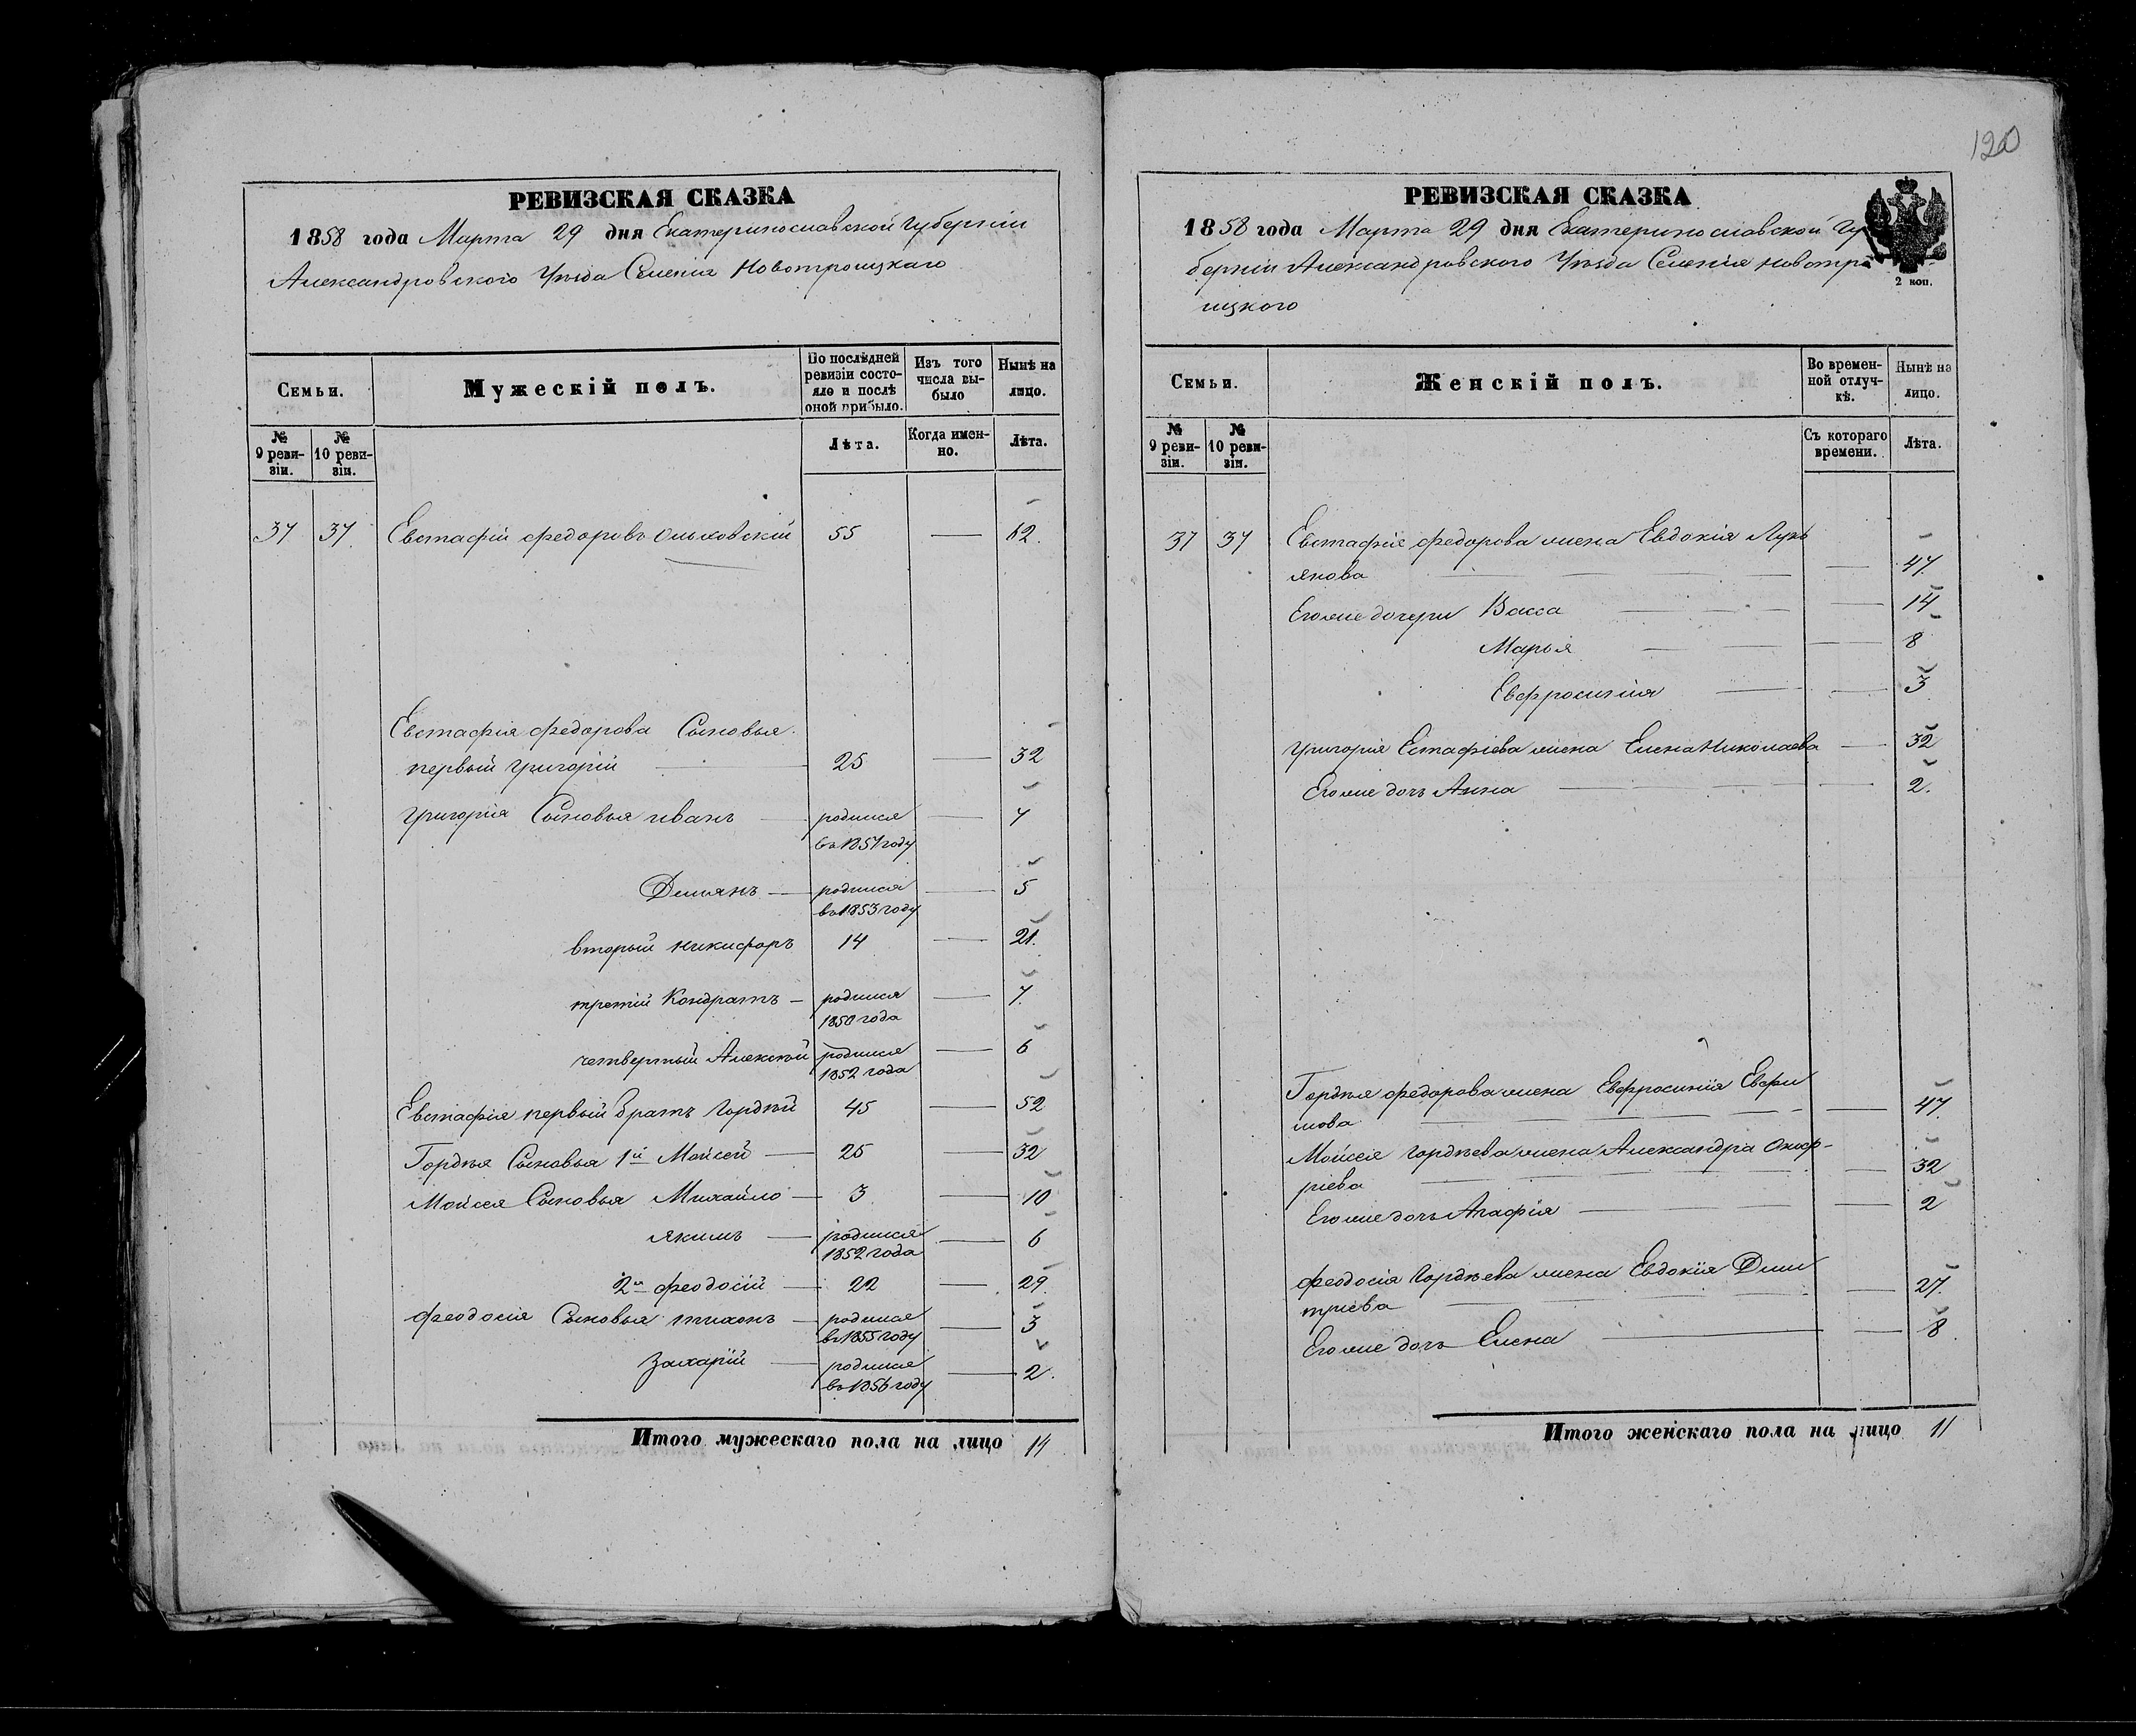 120
РЕВИЗСКАЯ СКАЗКА
1858 года Марта 29 дня Екатеринославской губерніи
Александровского Уѣзда Селенія Новотроицкаго
Семьи.
Мужескій полъ.
По послѣдней ревизіи состояло и послѣ оной прибыло.
Изъ того числа выбыло
Нынѣ на лицо.
№ 9 ревизіи.
№ 10 ревизіи.
Лѣта.
Когда именно.
Лѣта.
37 37 Евстафій федоровъ Ольховскій 55 — 62.
Евстафія федорова Сыновья
первый григорій — 25 — 32
григорія Сыновья иванъ — родился — 7
въ 1851 году
Демянъ — родился — 5
въ 1853 году
вторый никифоръ 14 — 21.
третій Кондратъ — родился — 7.
1850 года
четвертый Алексѣй родился — 6
1852 года
Евстафія первый братъ гордѣй 45 — 52
Гордѣя Сыновья 1й Мойсей — 25 — 32
Мойсея Сыновья Михайло — 3 — 10
якимъ — родился — 6
1852 года
2й феодосій — 22 — 29.
феодосія Сыновья тихонъ — родился — 3
въ 1855 году
захарій — родился — 2.
въ 1856 году
Итого мужескаго пола на лицо 14
РЕВИЗСКАЯ СКАЗКА
1858 года Марта 29 дня Екатеринославской гу
берніи Александровского Уѣзда Селенія новотро-
ицкого
2 коп.
Семьи.
Женскій полъ.
Во временной отлучкѣ.
Нынѣ на лицо.
№ 9 ревизіи.
№ 10 ревизіи.
Съ котораго времени.
Лѣта.
37 37 Евстафія федорова жена Евдокія Лукь
янова — 47
Егоже дочери Васса — 14
Марья — 8
Евфросинія — 3
григорія Естафіева жена Елена Николаева — 32
Егоже дочь Анна — 2.
Гордѣя федорова жена Евфросинія Ефи
мова — 47
Мойсея гордѣева жена Александра Оноф-
ріева — 32
Егоже дочь Агафія — 2
феодосія гордѣева жена Евдокія Дми
тріева — 27.
Егоже дочь Елена — 8.
Итого женскаго пола на лицо 11